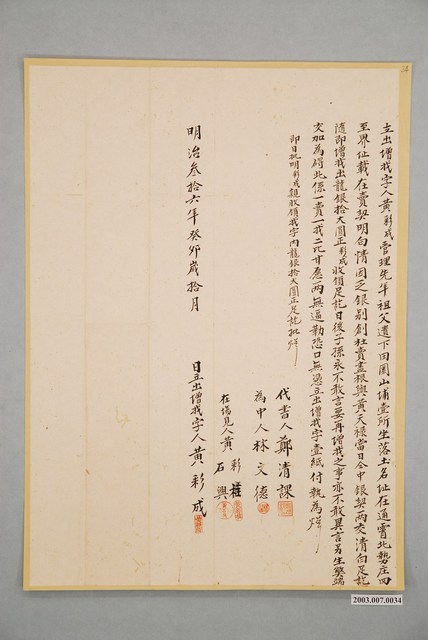 立出增找字人黃彩成管理先年祖父遺下田園山埔壹所坐落土名址在通霄北勢庄四
至界址載在賣契明白情因乏銀別創杜賣盡根與黃天祿當日全中銀契兩交清白足訖
隨即增找出龍銀拾大圓正彩成收領足訖日後子孫永不敢言要再增找之事亦不敢異言另生弊端
交加為碍此係一賣一找二比甘愿兩無逼勒恐口無憑立出增找字壹紙付執為炤
即日批明彩成親收領找字內龍銀拾大圓正足訖批炤
代書人鄭清課
為中人林文德
在場見人黃彩
石興
明治叁拾六年癸卯歲拾月 日立出增找字人黃彩成
2003.007.0034